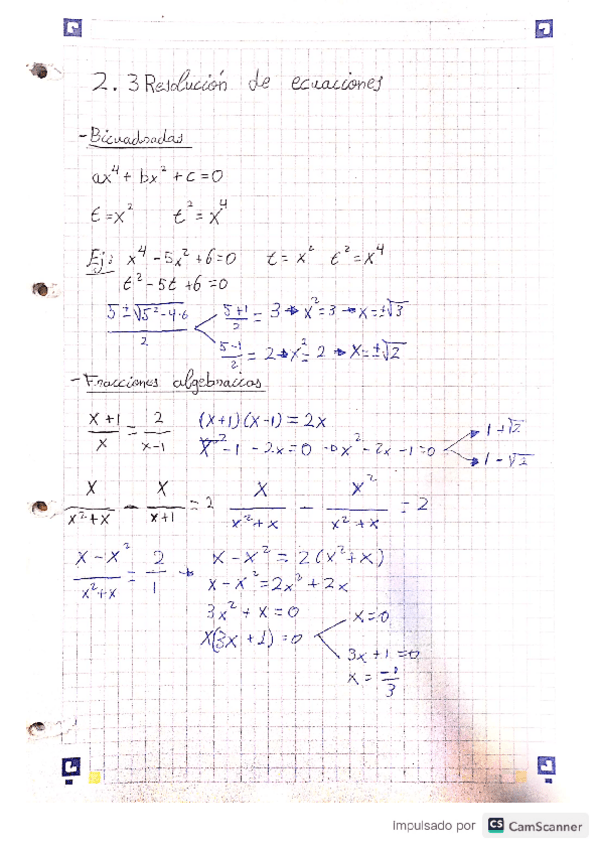 2.3 Resolución de ecuaciones
- Bicuadradas
ax⁴ + bx² + c = 0
t = x² t² = x⁴
Ej: x⁴ - 5x² + 6 = 0 t = x² t² = x⁴
t² - 5t + 6 = 0
(5 ± √(5² - 4·6))/2 (5+1)/2 = 3 → x² = 3 → x = ±√3
(5-1)/2 = 2 → x² = 2 → x = ±√2
- Fracciones algebraicas
(x+1)/x = 2/(x-1) (x+1)(x-1) = 2x
x² - 1 - 2x = 0 → x² - 2x - 1 = 0 → 1+√2
→ 1-√2
x/(x²+x) - x/(x+1) = 2 x/(x²+x) - x²/(x²+x) = 2
(x-x²)/(x²+x) = 2/1 → x - x² = 2(x²+x)
x - x² = 2x² + 2x
3x² + x = 0
x(3x+1) = 0 x = 0
3x + 1 = 0
x = -1/3
Impulsado por CS CamScanner